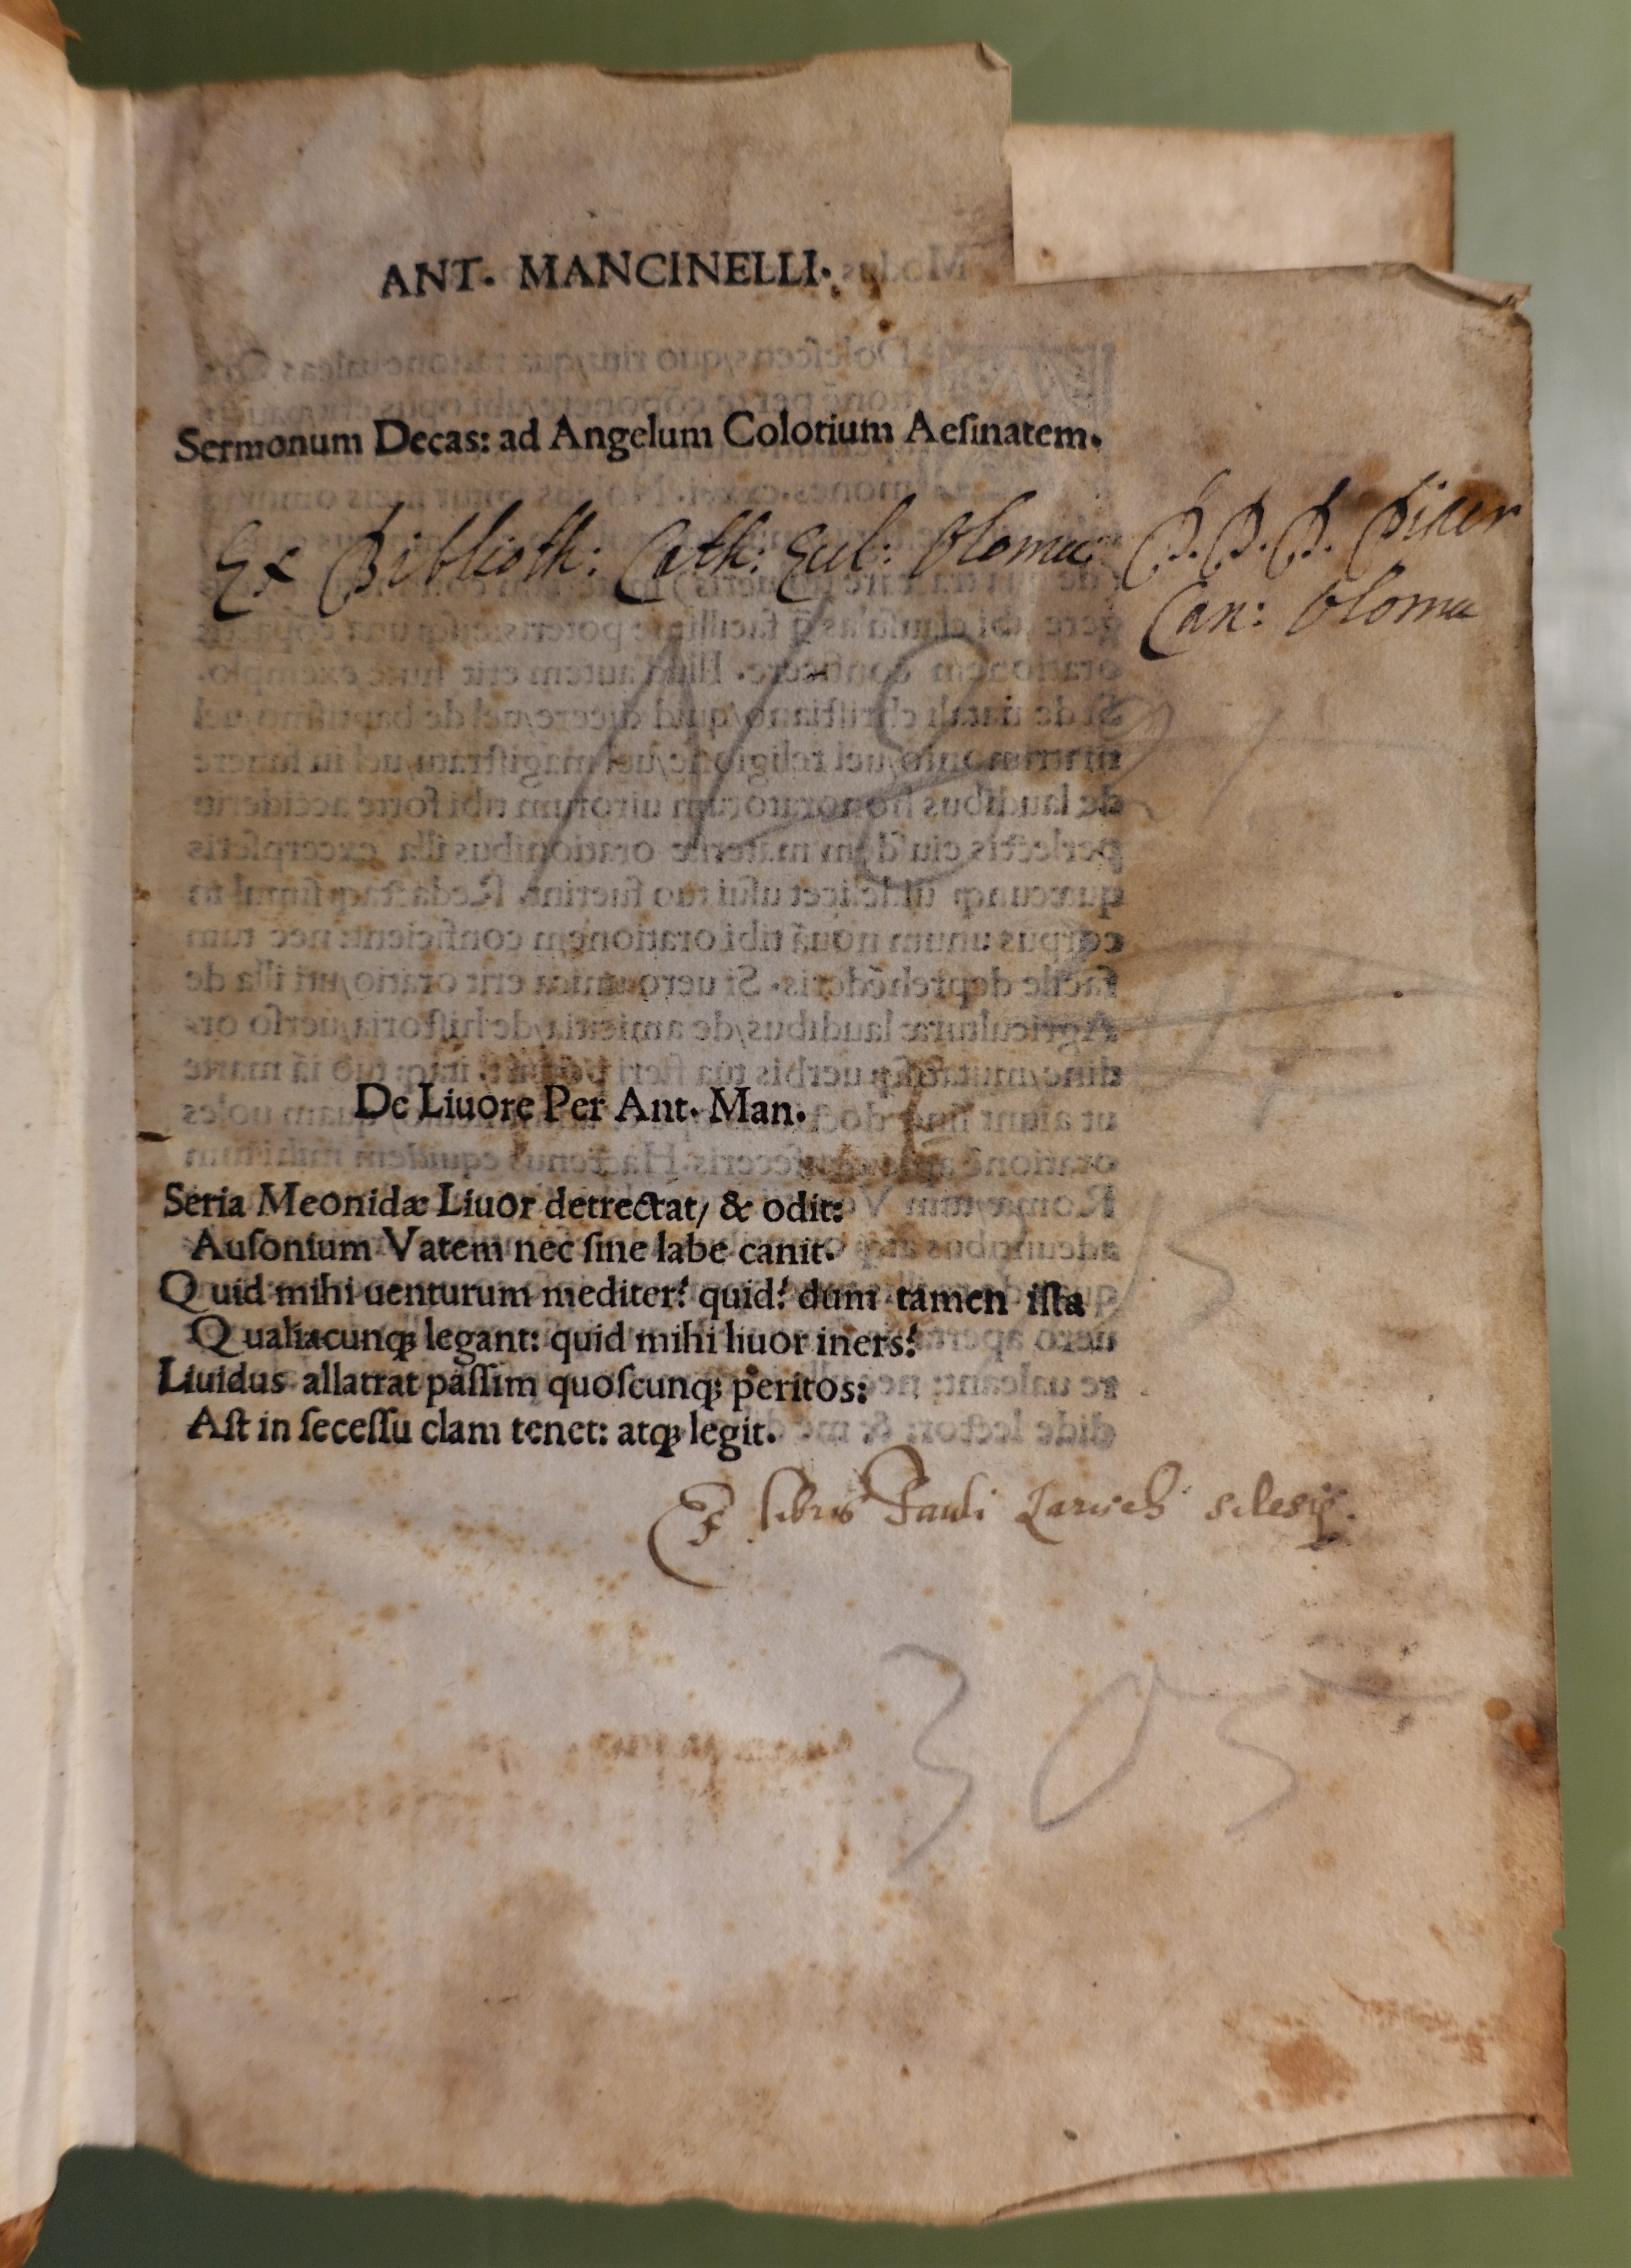 ANT. MANCINELLI.
Sermonum Decas: ad Angelum Colotium Aeſinatem.
Ex Biblioth: Cath: Eccl: Olomuc
Can: Olomu
No
De Liuore Per Ant. Man.
Seria Meonidæ Liuor detrectat/ & odit:
Auſonium Vatem nec ſine labe canit.
Quid mihi uenturum mediter? quid? dum tamen iſta
Qualiacunq; legant: quid mihi liuor iners?
Liuidus allatrat paſſim quoſcunq; peritos:
Aſt in ſeceſſu clam tenet: atq; legit.
libris Pauli silesii.
305